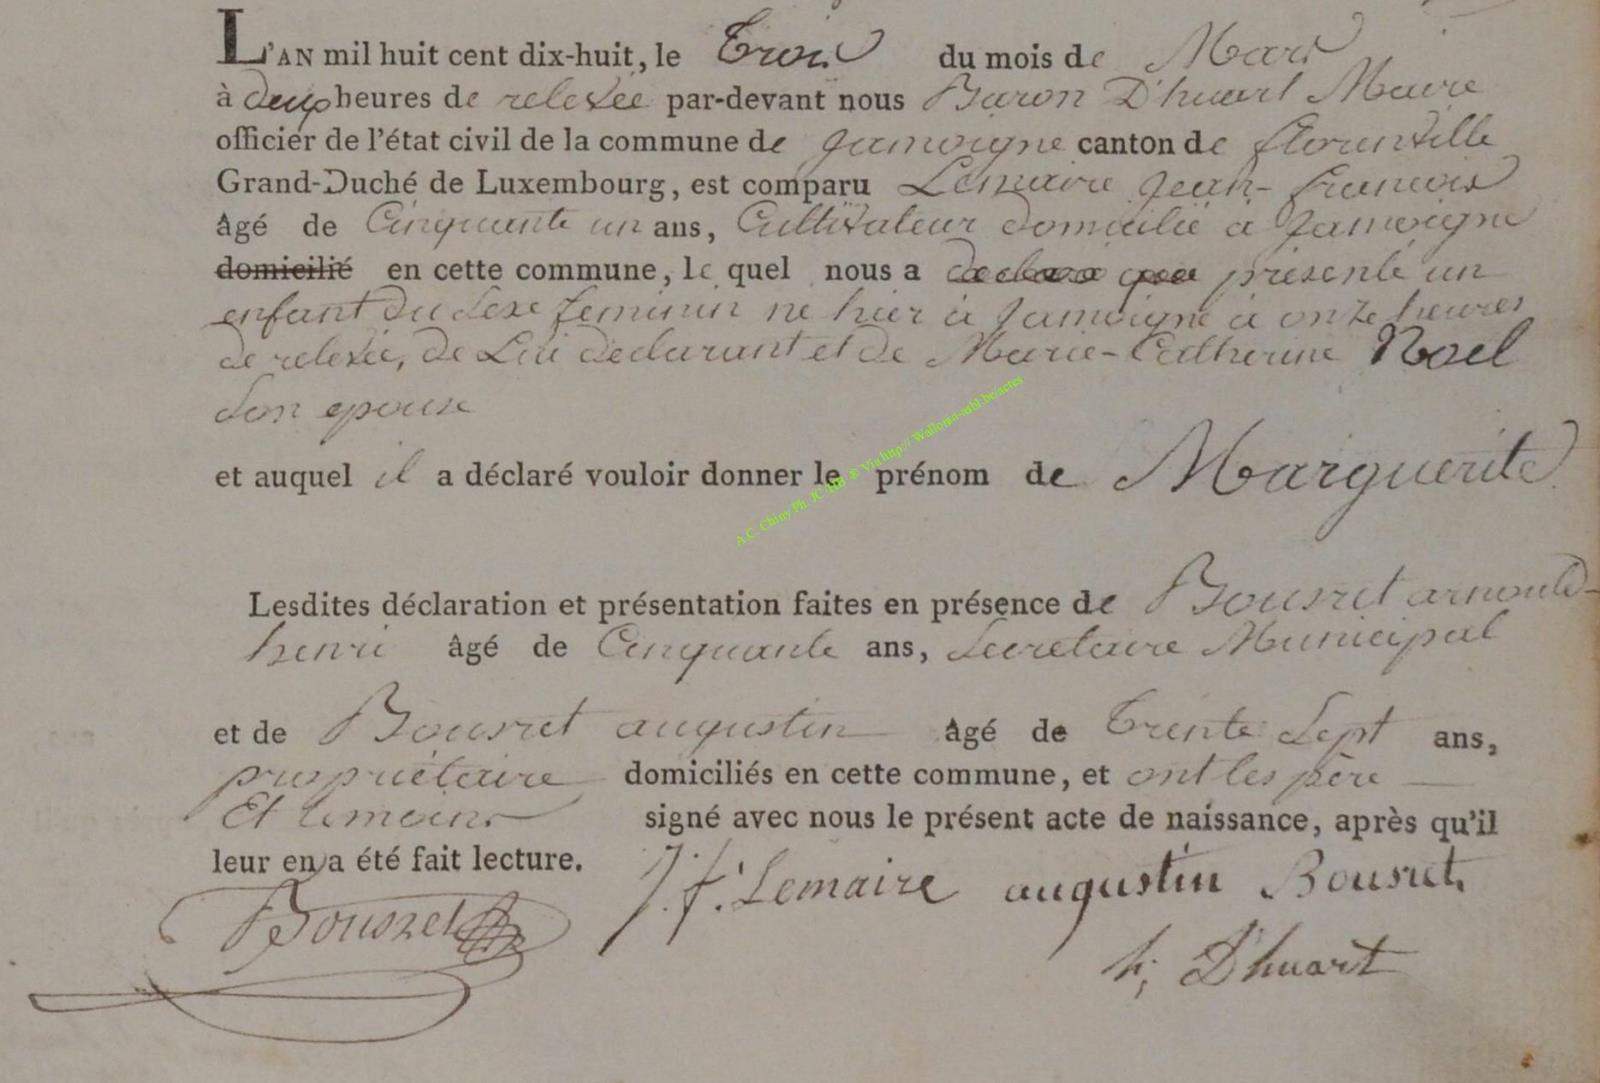 L'AN mil huit cent dix-huit, le Trois du mois de Mars
à deux heures de relevée par-devant nous Baron D'huart Maire
officier de l'état civil de la commune de Jamoigne canton de florenville
Grand-Duché de Luxembourg, est comparu Lemaire Jean-francois
âgé de Cinquante un ans, Cultivateur domicilié a Jamoigne
domicilié en cette commune, le quel nous a declaré que présenté un
enfant du Sexe feminin né hier à Jamoigne à onze heures
de relevée, de Lui declarant et de Marie-Catherine Noel
Son epouse
et auquel il a déclaré vouloir donner le prénom de Marguerite
Lesdites déclaration et présentation faites en présence de Bousret arnould-
henri âgé de Cinquante ans, Secretaire Municipal
et de Bousret augustin âgé de Trente Sept ans,
propriétaire domiciliés en cette commune, et ont les père
Et temoins signé avec nous le présent acte de naissance, après qu'il
leur en a été fait lecture.
J. f. Lemaire augustin Bousret.
Bousret
h; D'huart
A.C. Chiny Ph. JC HB ® Via http:// Wallonia-asbl.be/actes